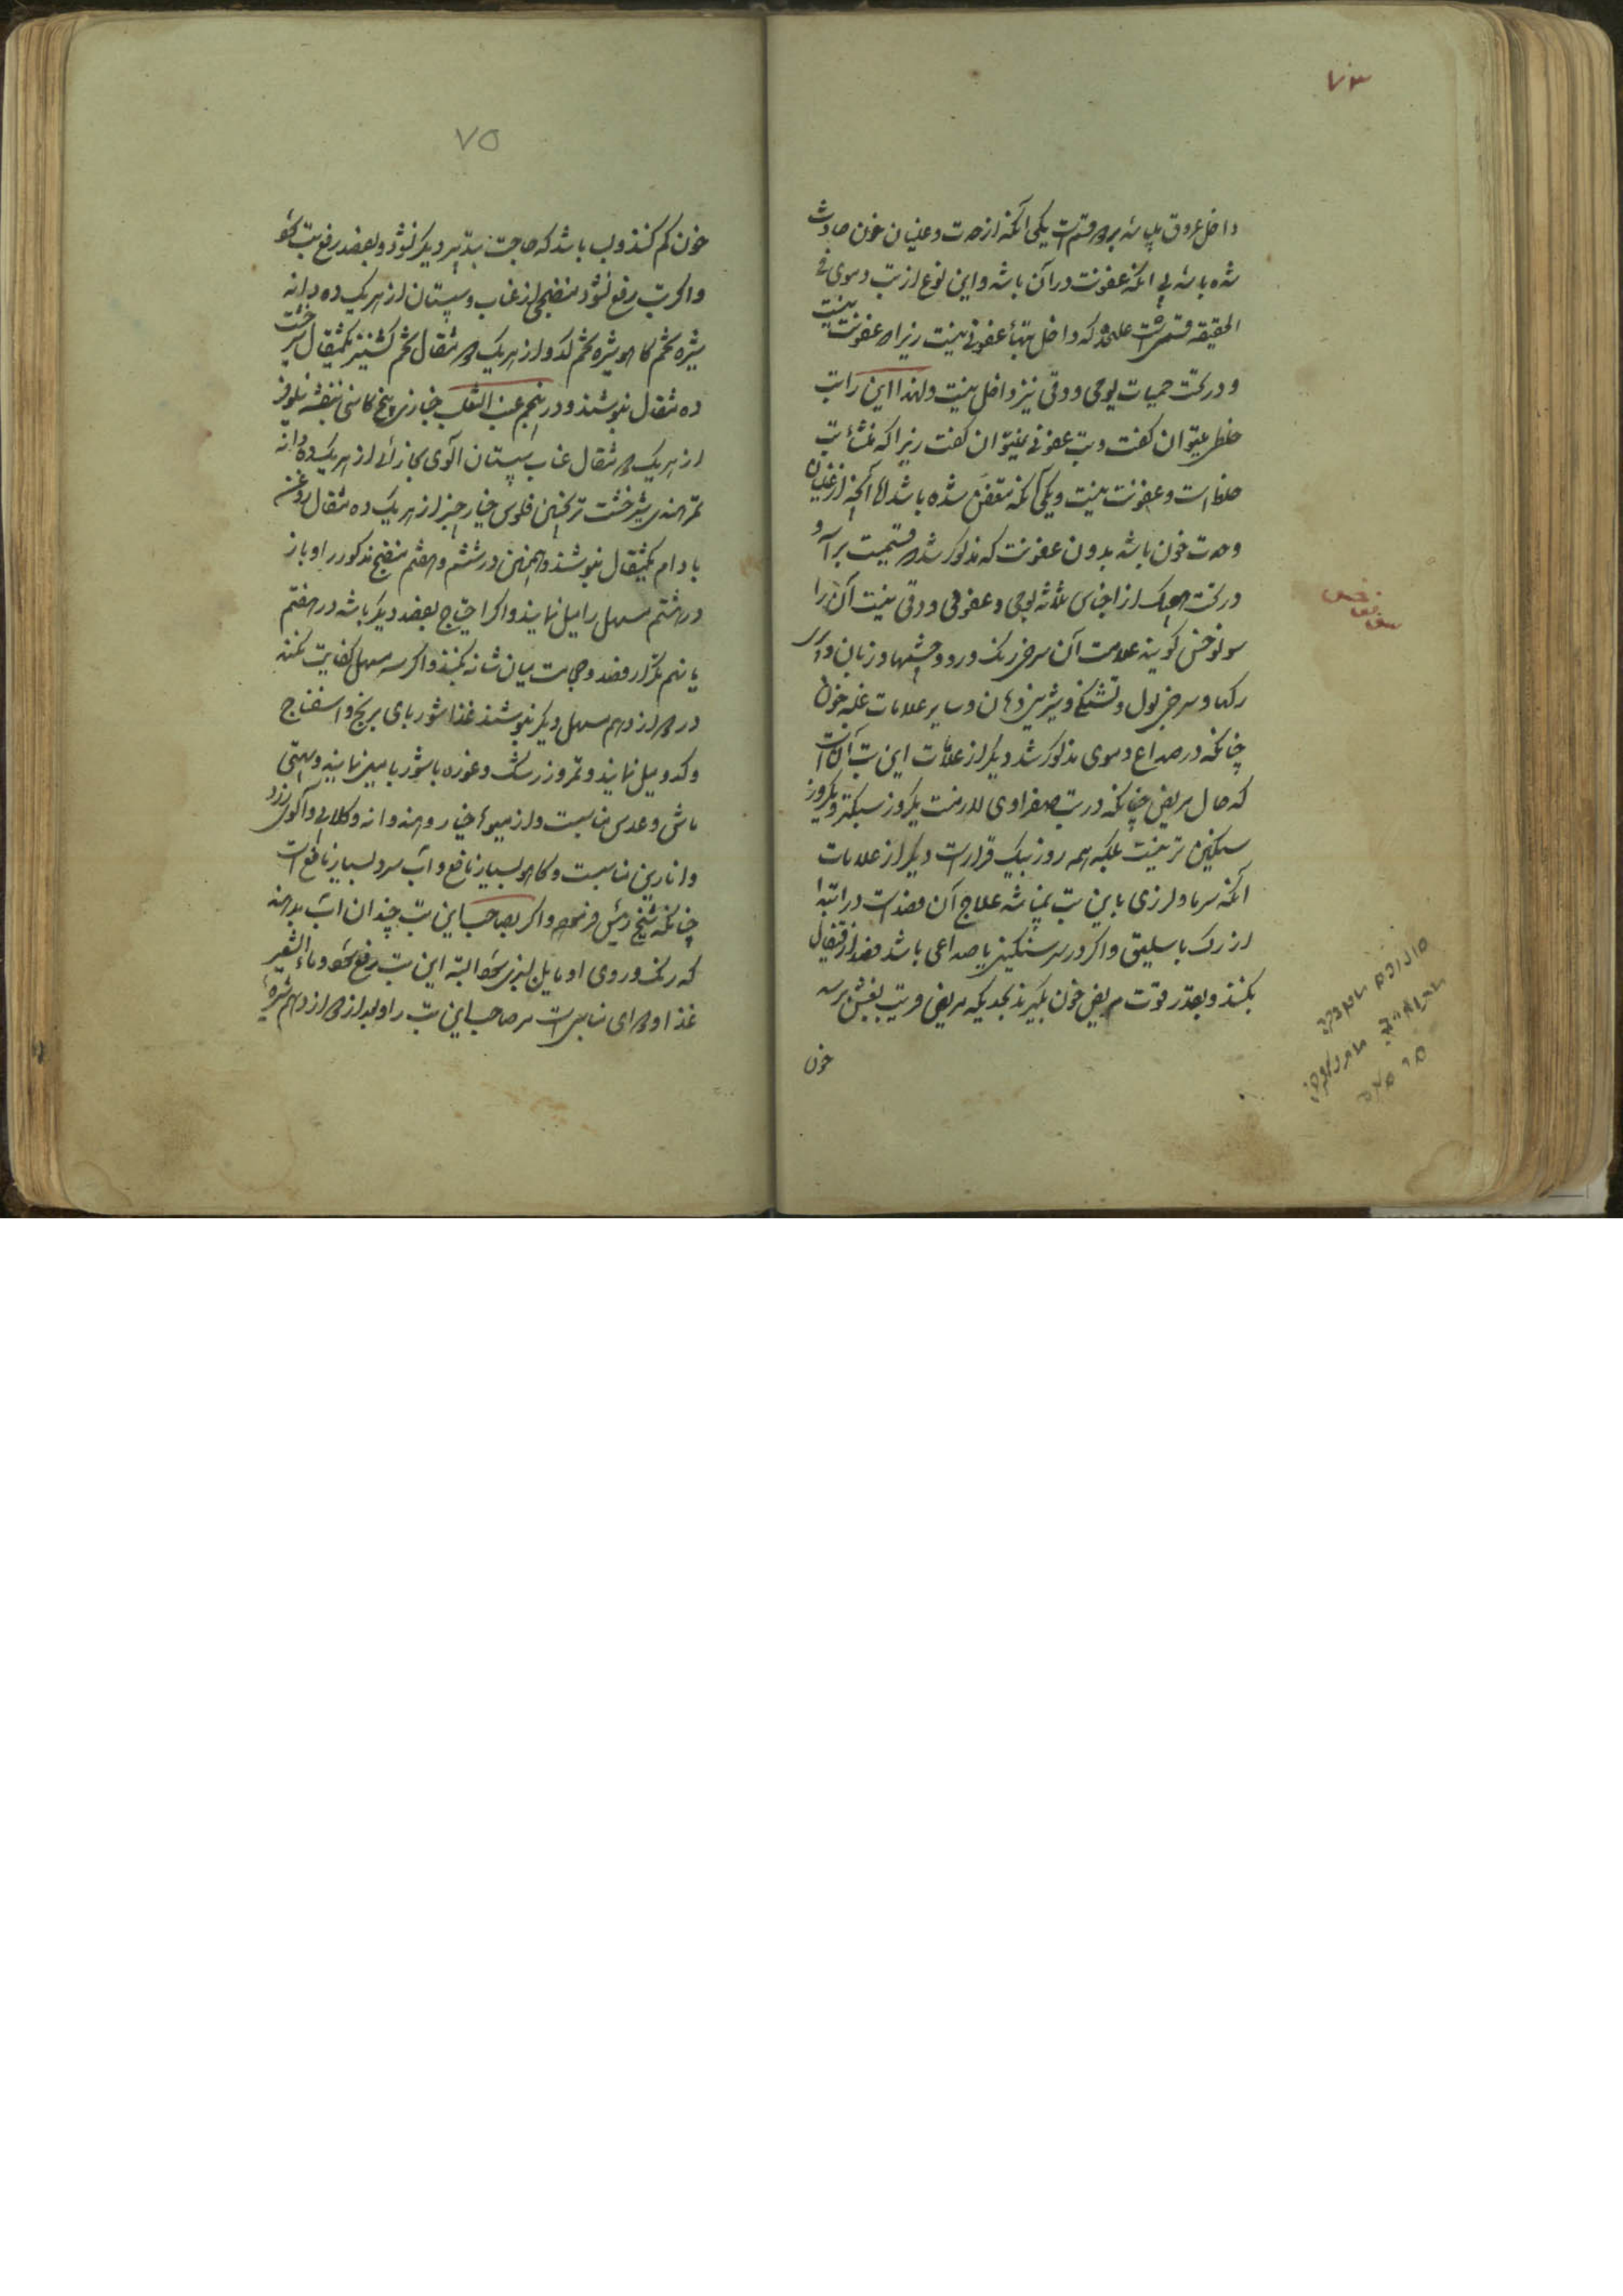 ۷۳
داخل عروق بباشد بر دو قسم است یکی آنکه از حدت و غلیان خون حادث
شده باشد بی آنکه عفونت در آن باشد و این نوع از تب دموی فی
الحقیقه قسمی است علیحده که داخل تبهاء عفونی نیست زیرا که عفونت نیست
و در تحت حمیات یومی و دقی نیز داخل نیست و لهذا این را تب
خلطی میتوان گفت و تب عفونی نمیتوان گفت زیرا که منشاء تب
خلط است و عفونت نیست و یکی آنکه متعفن شده باشد اما آنچه از غلیان
وحدت خون باشد بدون عفونت که مذکور شد قسمیست برآسه و
در تحت هیچیک از اجناس ثلاثه یومی و عفونی و دقی نیست آن را
سونوخس گویند علامت آن سرخی رنگ و رو و چشمها و زبان و
رگها و سرخی بول و تشنگی و شیرینی دهان و سایر علامات غلبه خون
چنانکه در صداع دموی مذکور شد دیگر از علامات این تب آن است
که حال مریض چنانکه در تب صفراوی لازمست یکروز سبکتر و یکروز
سنگین تر نیست بلکه همه روز بیک قرار است دیگر از علامات
آنکه سرما و لرزی با این تب نمیباشد علاج آن فصد است در ابتدا
از رگ باسلیق و اگر در سر سنگینی یا صداعی باشد فصد از قیفال
بکنند و بقدر قوت مریض خون بگیرند بحدیکه مریض قریب بغش برسد
خون
سونوخس
۷۵
خون کم کنند و بسا باشد که حاجت بتدبیر دیگر نشود و بفصد رفع تب بشود
و اگر تب رفع نشود منضجی از عناب و سپستان از هر یک ده دانه
شیره تخم کاهو شیره تخم کدو از هر یک دو مثقال تخم گشنیز یکمثقال شیرخشت
ده مثقال بنوشند و در پنجم عنب الثعلب خبازی بیخ کاسنی بنفشه نیلوفر
از هر یک دو مثقال عناب سپستان آلوی بخارائی از هر یک ده دانه
تمر هندی شیرخشت ترنجبین فلوس خیارچنبر از هر یک ده مثقال روغن
بادام یکمثقال بنوشند و همچنین در ششم و هفتم منضج مذکور را و باز
در هشتم مسهل را میل نمایند و اگر احتیاج بفصد دیگر باشد در هفتم
یا نهم تکرار فصد و حجامت میان شانه بکنند و اگر سه مسهل کفایت نکند
در دوازدهم مسهل دیگر بنوشند غذا شوربای برنج و اسفناج
و کدو میل نمایند و تمر و زرشک و غوره با شوربا میل نمایند و
ماش و عدس مناسبست و از میوها خیار و هندوانه و گلابی و آلوی زرد
و انارین مناسبست و کاهو بسیار نافع و آب سرد بسیار نافع است
چنانکه شیخ رئیس فرموده و اگر بصاحب این تب چندان آب بدهند
که رنگ و روی او مایل بسبزی بشود البته این تب رفع بشود و ماء الشعیر
غذا و دوای مناسبی است مر صاحب این تب را و بعد از دوازدهم شیره